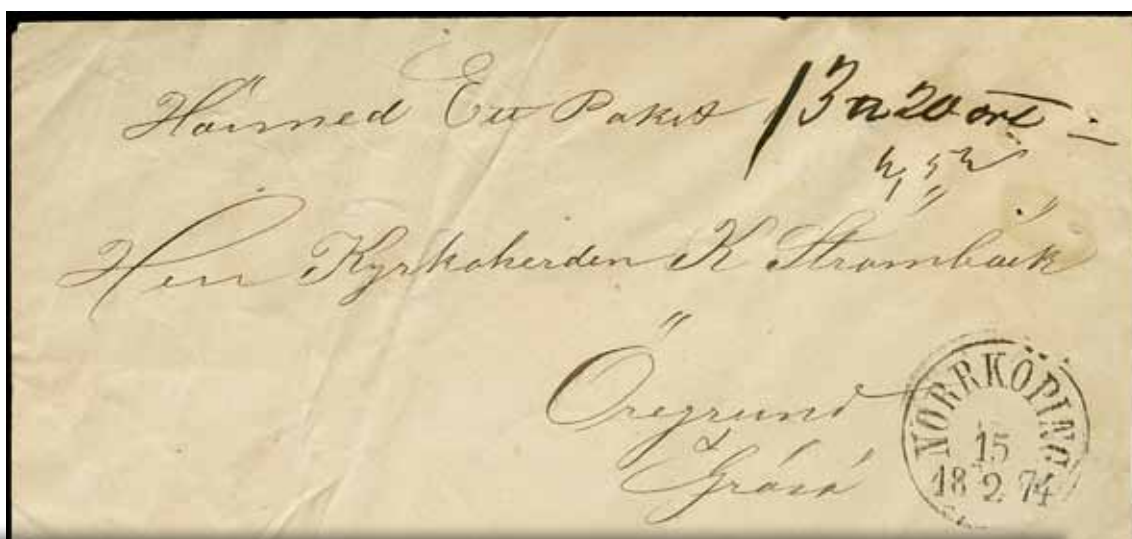 Härmed Ett Paket
20 öre
Herr Kyrkoherden K Strömbäck
Öregrund
Gräsö
NORRKÖPING
15
18 2 74